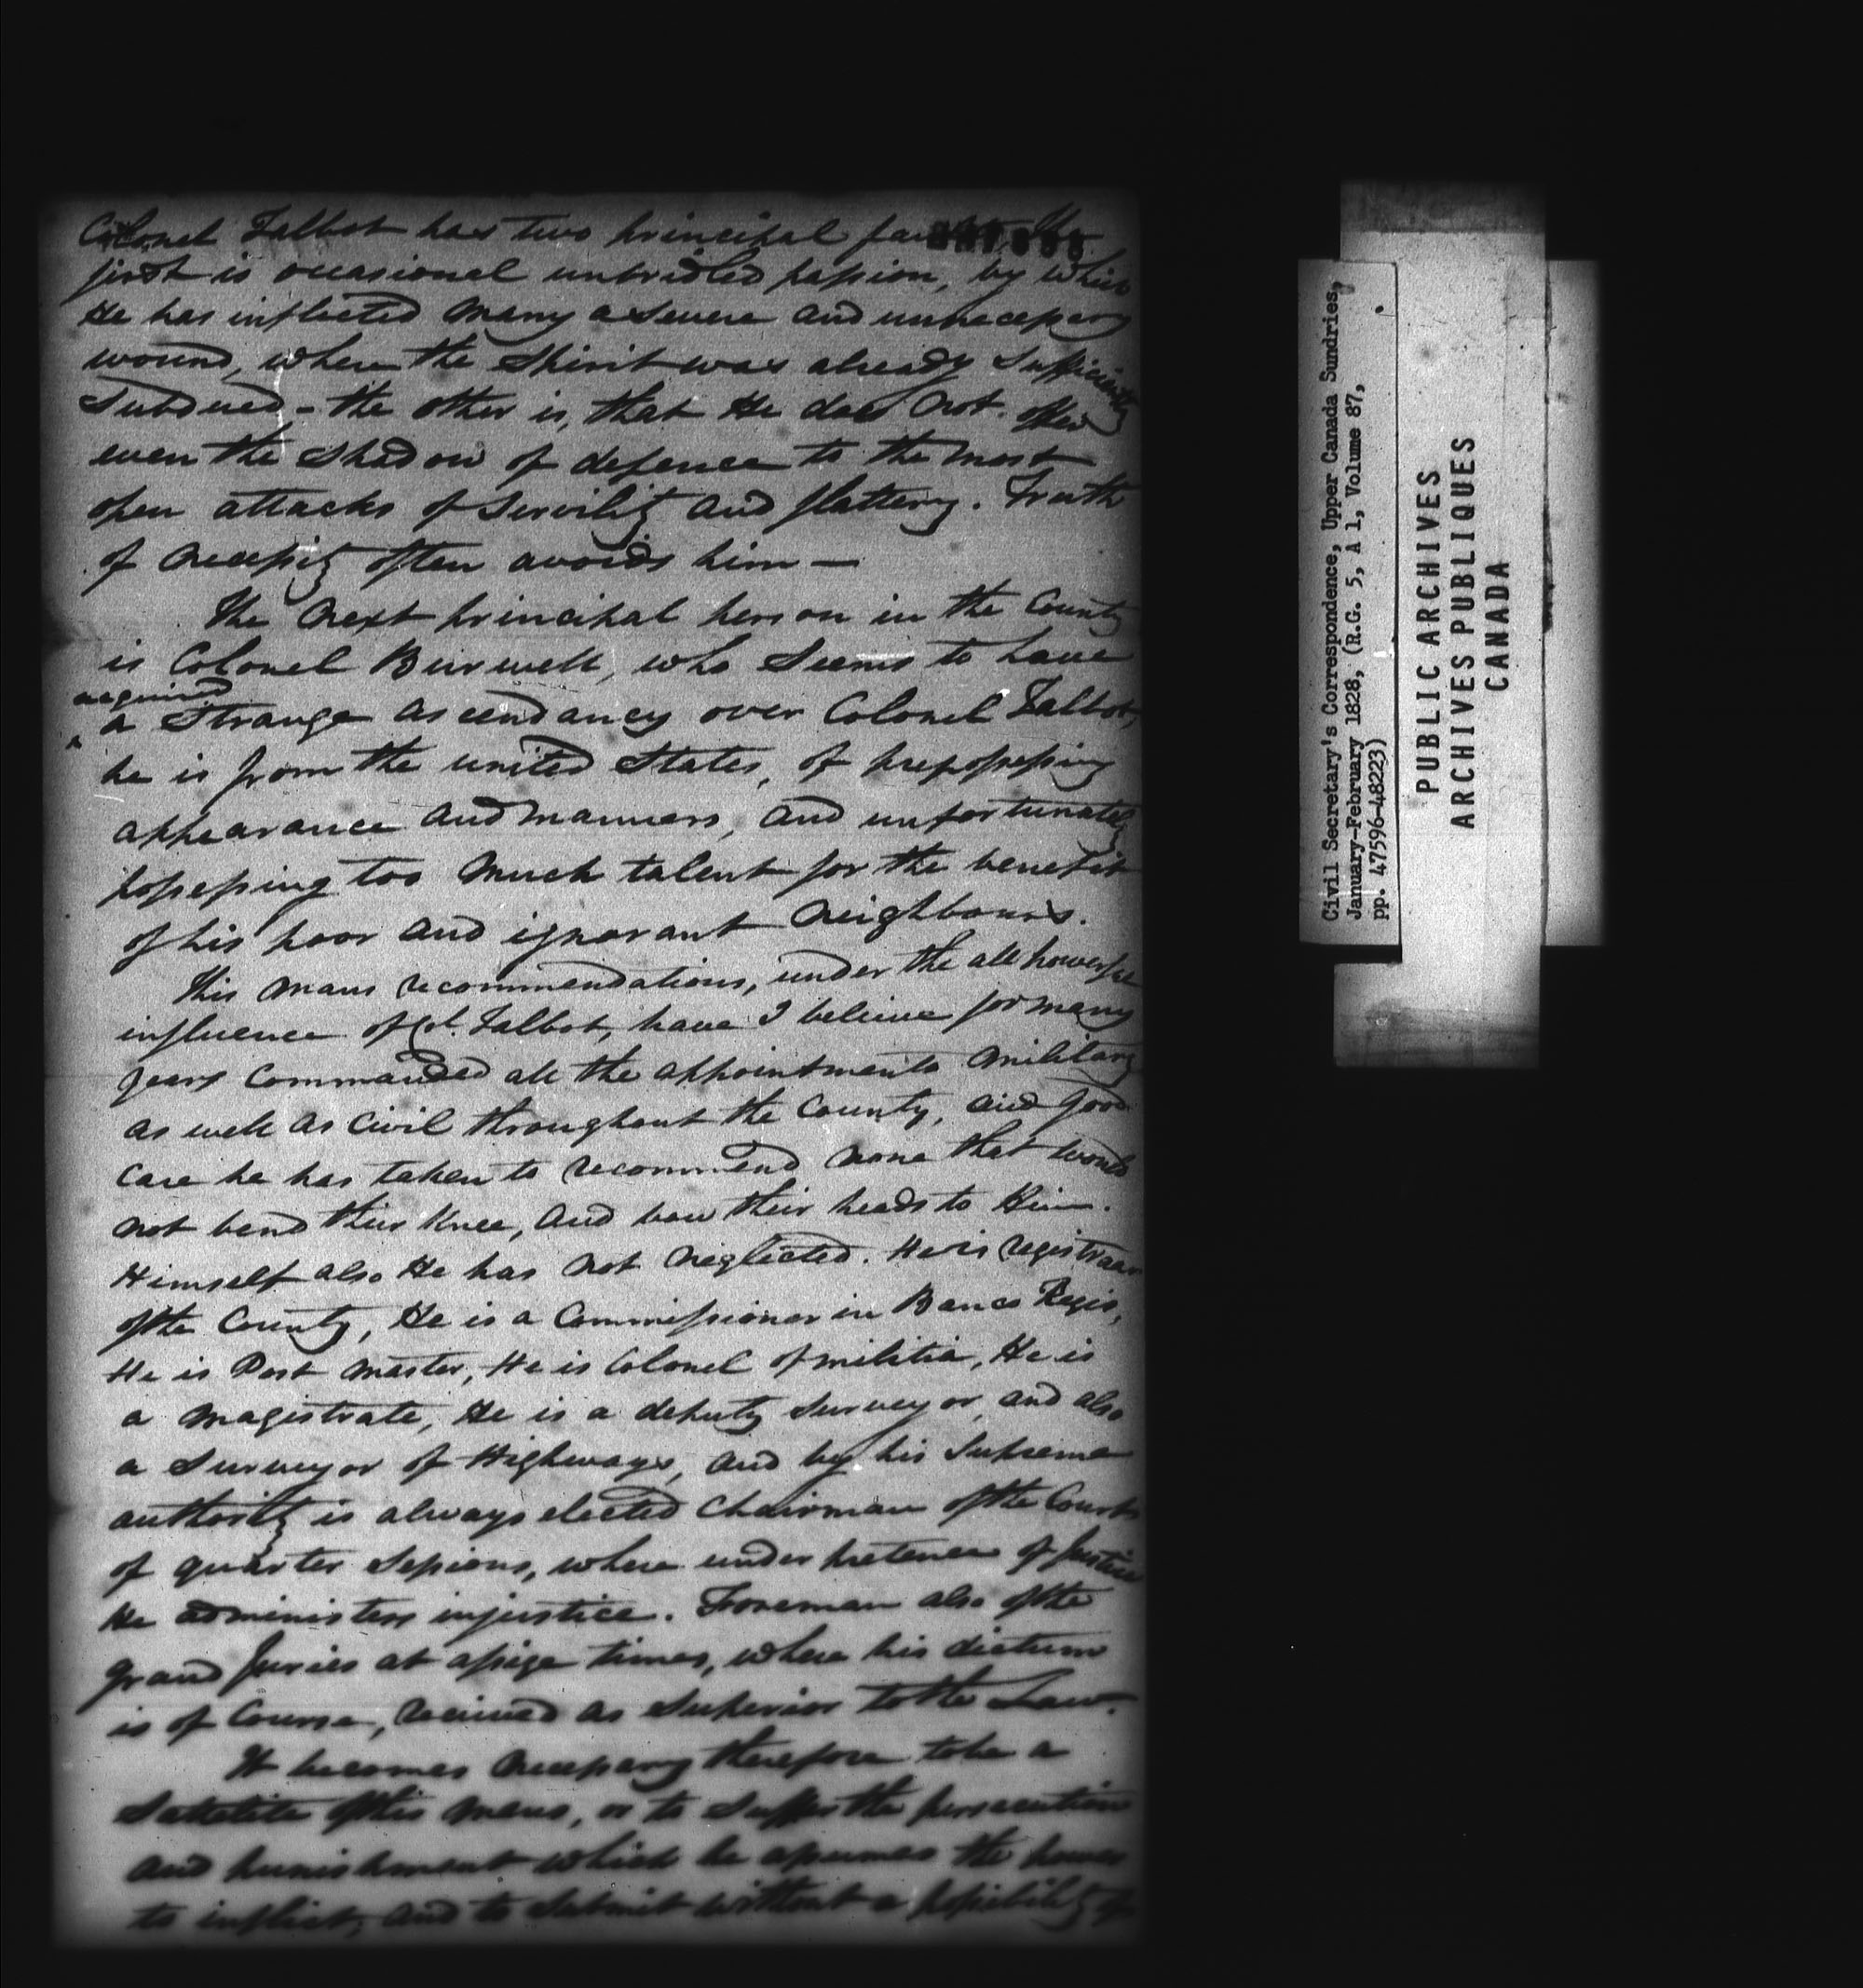 Colonel Talbot has two principal faults, The
first is occasional unbridled passion, by which
He has inflected many a severe and unnecessary
wound, where the Spirit was already sufficiently
Subdued - the other is, that He does not offer
even the Shadow of defence to the most
open attacks of Servility and flattery. Truth
of necessity often avoids him —
The next principal person in the County
is Colonel Burwell, who Seems to have
acquired
a Strange ascendancy over Colonel Talbot,
he is from the united States, of prepossessing
appearance and manners, and unfortunately
possessing too much talent for the benefit
of his poor and ignorant neighbours.
This mans recommendations, under the all powerful
influence of Col. Talbot, have I beleive for many
years Commanded all the appointments military
as well as Civil throughout the County, and good
care he has taken to recommend none that would
not bend their Knee, and bow their heads to Him.
Himself also He has not neglected. He is registrar
of the County, He is a Commissioner in Banco Regis,
He is Post master, He is Colonel of militia, He is
a magistrate, He is a deputy Surveyor, and also
a Surveyor of Highways, and by his Supreme
authority is always elected Chairman of the Courts
of quarter Sessions, where under pretence of Justice
He administers injustice. Foreman also of the
grand Juries at assize times, where his dictum
is of Course, received as Superior to the Law.
It becomes necessary therefore to be a
Satellite of this mans, or to Suffer the persecution
and punishment which he assumes the power
to inflict, and to Submit without a possibility of
Civil Secretary's Correspondence, Upper Canada Sundries,
January-February 1828, (R.G. 5, A 1, Volume 87,
pp. 47596-48223)
PUBLIC ARCHIVES
ARCHIVES PUBLIQUES
CANADA